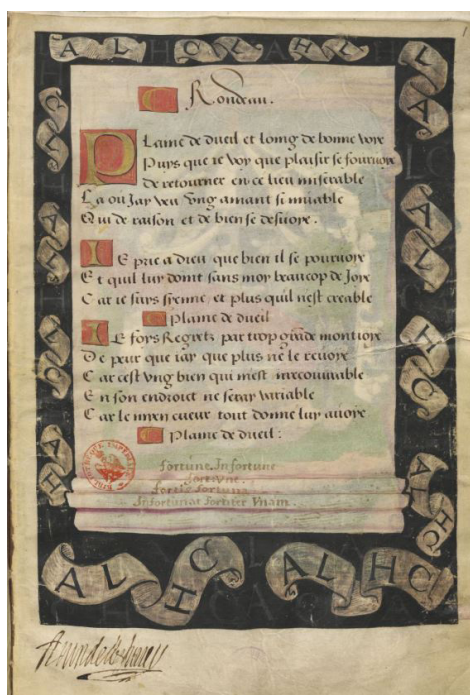 A L H C L A H L
Rondeau.
Plaine de dueil et loing de bonne voye
Puys que ie voy que plaisir se fourvoye
de retourner en ce lieu miserable
La ou Jay veu vng amant si muable
Qui de raison et de bien se desvoye.
Ie prie a dieu que bien il se pourvoye
Et quil luy doint sans moy beaucop de Joye
Car ie suys syenne, et plus quil nest creable
plaine de dueil
Ie foys Regretz par trop gra͞de montioye
De peur que iay que plus ne le revoye
Car cest vng bien qui mest irrecouurable
En son endroict ne seray variable
Car le myen cueur tout donne luy avoye
Plaine de dueil:
fortune. Infortune
fort vne.
fortis fortuna
Infortunat fortiter Vnam.
A L H C A L H C